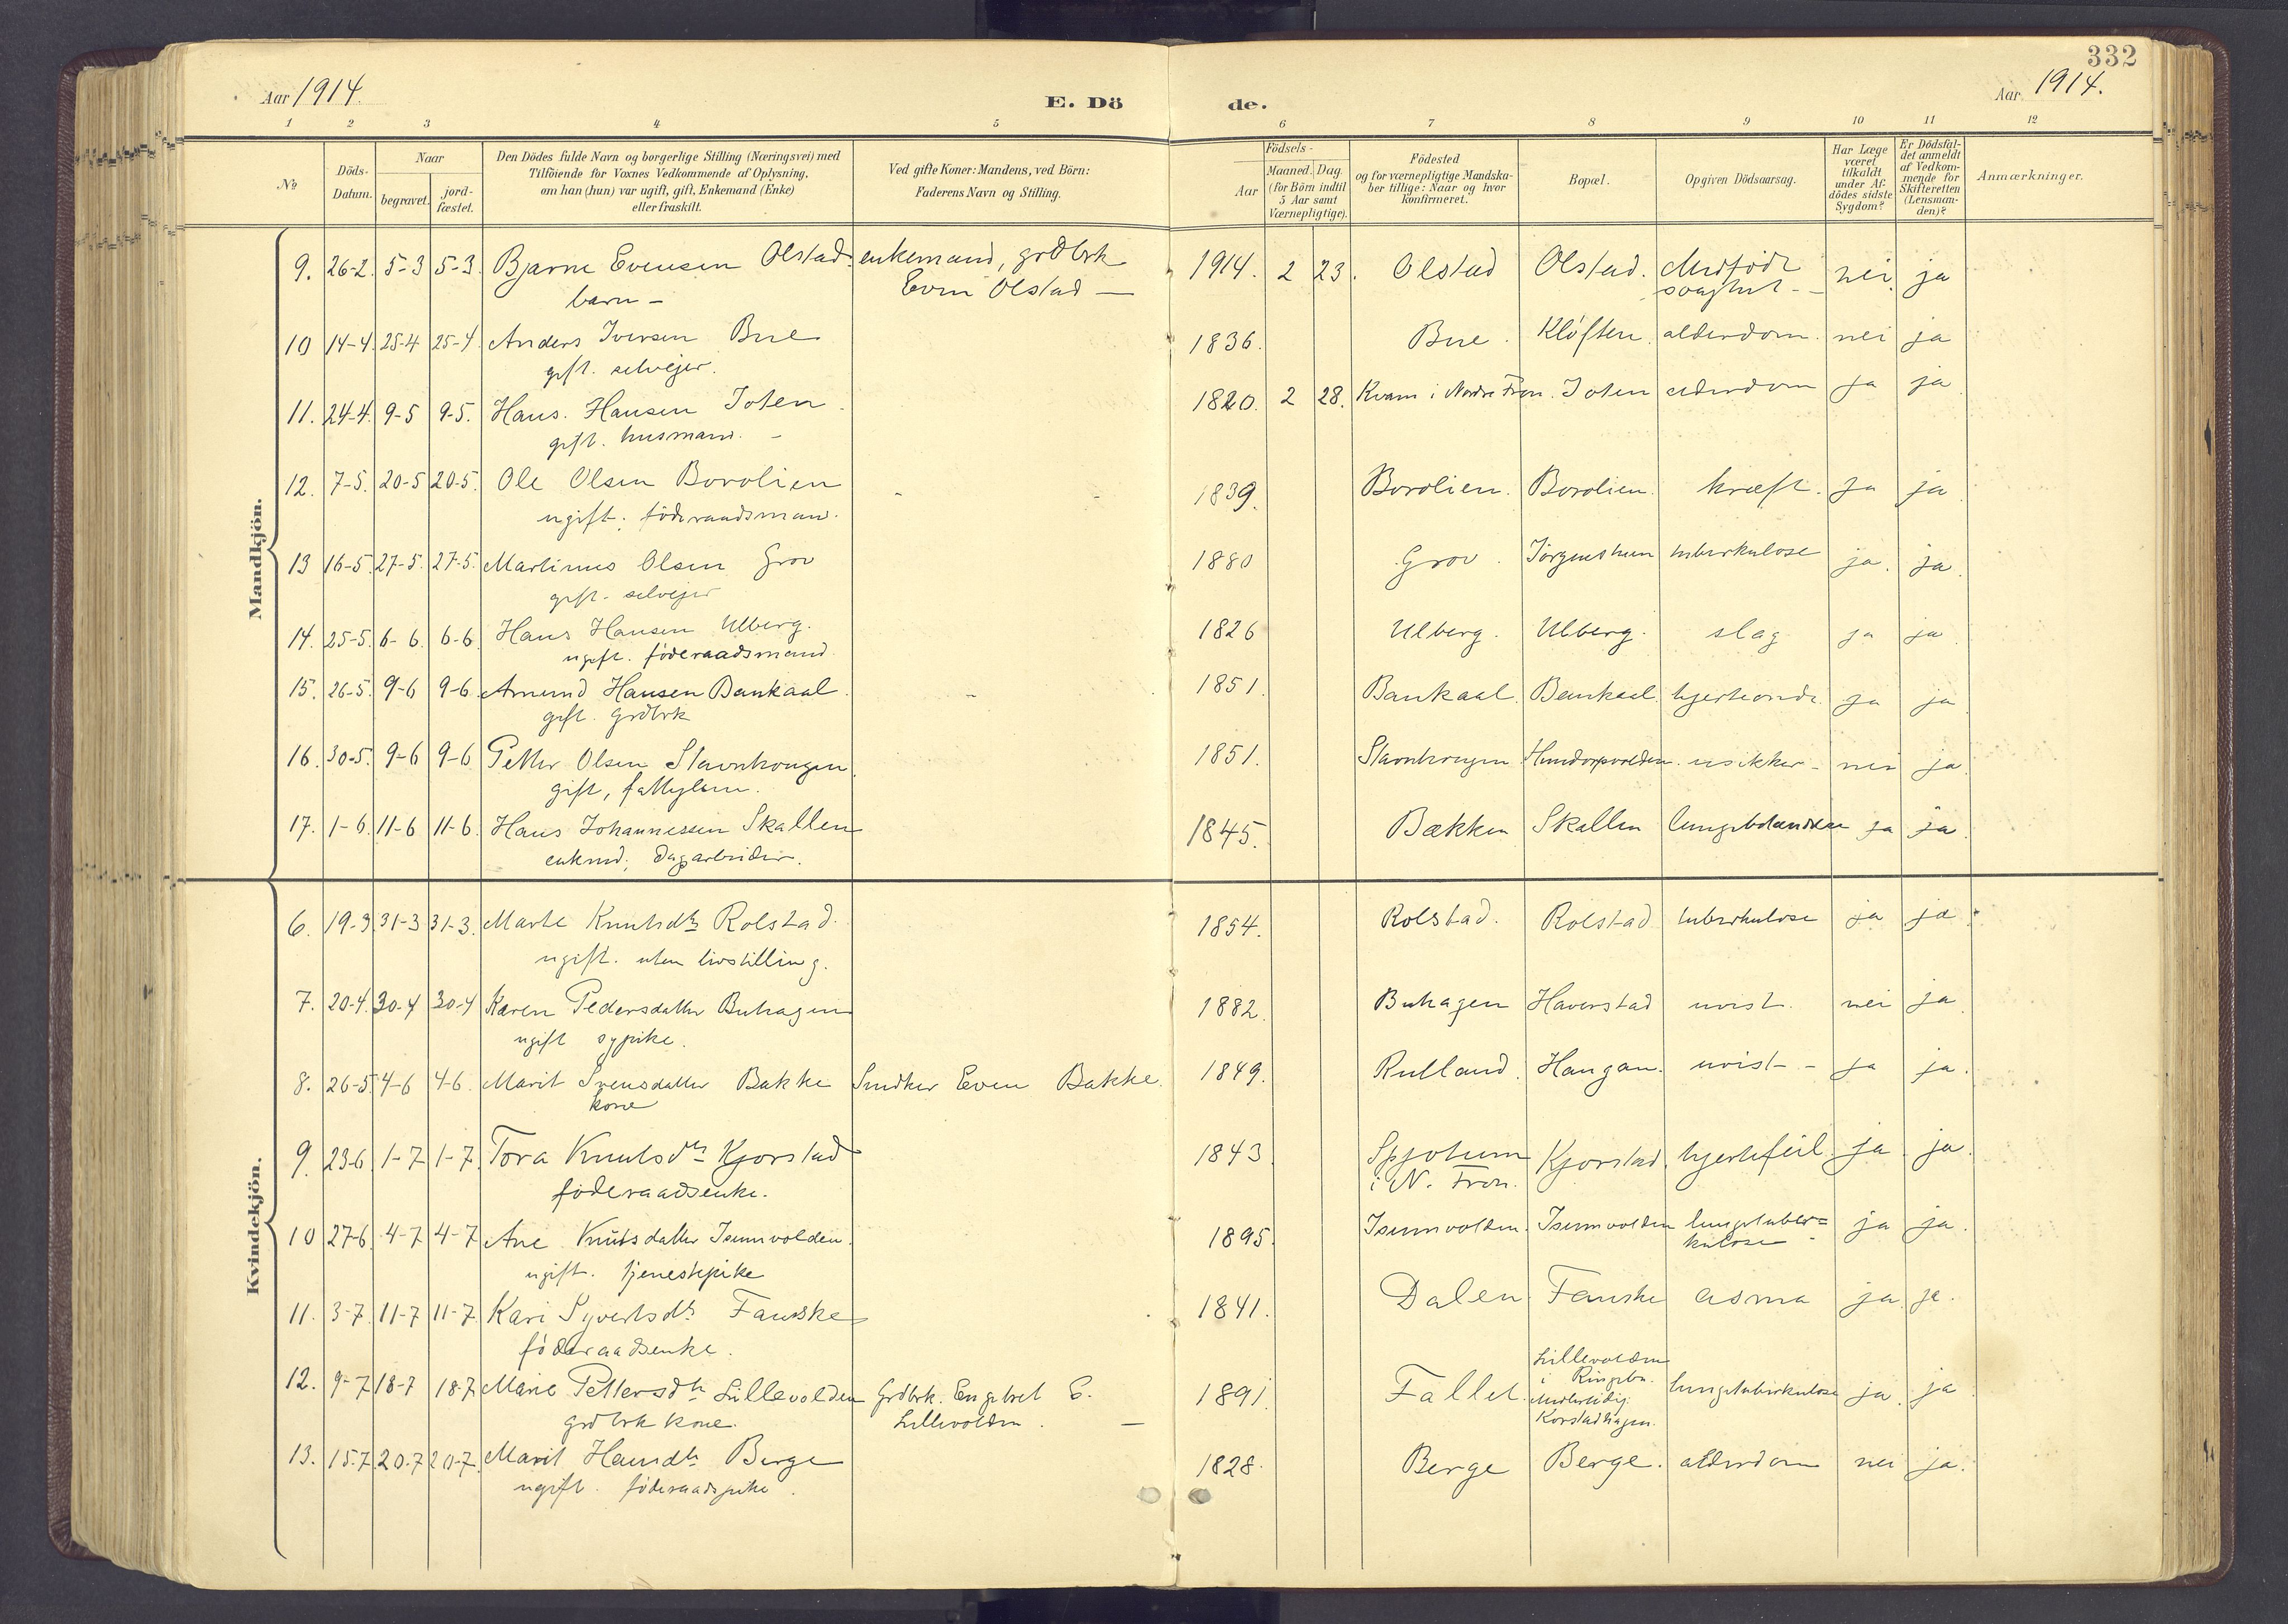 332
Aar 1914.
E. Dö de.
Aar 1914.
1 2 3 4 5 6 7 8 9 10 11 12
№
Döds-
Datum.
Naar
begravet.
jord-
fæstet.
Den Dödes fulde Navn og borgerlige Stilling (Næringsvei) med
Tilföiende for Voxnes Vedkommende af Oplysning,
om han (hun) var ugift, gift, Enkemand (Enke)
eller fraskilt.
Ved gifte Koner: Mandens, ved Börn:
Faderens Navn og Stilling.
Födsels-
Aar
Maaned. Dag.
(for Börn indtil
5 Aar samt
Værnepligtige).
Födested
og for værnepligtige Mandska-
ber tillige: Naar og hvor
konfirmeret.
Bopæl.
Opgiven Dödsaarsag.
Har Læge
været
tilkaldt
under Af-
dödes sidste
Sygdom?
Er Dödsfal-
det anmeldt
af Vedkom-
mende for
Skifteretten
(Lensman-
den)?
Anmærkninger.
Mandkjön.
9. 26-2. 5-3 5-3. Bjarne Evensen Olstad. enkemand, grdbrk 1914. 2 23. Olstad Olstad. Medfödt nei ja
barn - Even Olstad — svaghet -
10 14-4. 25-4 25-4 Anders Iversen Bue 1836. Bue. Klöften. alderdom. nei ja
gift. selvejer.
11. 24-4. 9-5 9-5. Hans Hansen Toten. 1820. 2 28. Kvam i Nordre Fron. Toten alderdom ja ja
gift. husmand. -
12. 7-5. 20-5 20-5. Ole Olsen Borolien 1839. Borolien. Borolien. kræft. ja ja
ugift. föderaadsmand.
13 16-5. 27-5. 27-5. Martinus Olsen Grov 1880 Grov. Jörgenstuen tuberkulose ja. ja.
gift. selvejer
14. 25-5. 6-6. 6-6. Hans Hansen Ulberg. 1826 Ulberg. Ulberg. slag ja ja
ugift. föderaadsmand.
15. 26-5. 9-6 9-6. Amund Hansen Bankaal. 1851. Bankaal. Bankaal. hjerteonde. ja ja
gift. grdbrk
16. 30-5. 9-6 9-6 Petter Olsen Stavnhougen 1851. Stavnhougen Hundorpvolden. usikker - nei ja.
gift, fattiglem.
17. 1-6. 11-6 11-6. Hans Johannessen Skallen 1845. Bækken Skallen lungebetændelse ja ja.
enkmd. dagarbeider.
Kvindekjön.
6. 19-3. 31-3 31-3. Marte Knutsdtr Rolstad. 1854. Rolstad. Rolstad tuberkulose ja ja
ugift. uten livstilling.
7. 20-4. 30-4 30-4 Karen Pedersdatter Buhagen 1882. Buhagen Haverstad uvist. nei ja
ugift sypike.
8. 26-5 4-6 4-6. Marit Svensdatter Bakke Snedker Even Bakke. 1849. Rulland. Haugan. uvist - ja ja.
kone
9. 23-6 1-7 1-7. Tora Knutsdtr Kjorstad 1843 Spjotum Kjorstad. hjertefeil. ja ja.
föderaadsenke. i N. Fron.
10 27-6. 4-7 4-7 Ane Knutsdatter Isumvolden. 1895. Isumvolden. Isumvolden lungetuber= ja ja.
ugift. tjenestepike kulose
11. 3-7. 11-7 11-7. Kari Syvertsdtr Fauske 1841. Dalen Fauske asma ja ja.
föderaadsenke.
12. 9-7 18-7 18-7. Marie Pettersdtr Lillevolden Grdbrk. Engebret E. 1891. Fallet. Lillevolden lungetuberkulose ja. ja
grdbrk kone. Lillevolden. — i Ringebu.
midlertidig
Korstadhagen.
13. 15-7. 20-7 20-7. Marit Hansdtr Berge 1828. Berge Berge. alderdom nei ja.
ugift. föderaadspike.